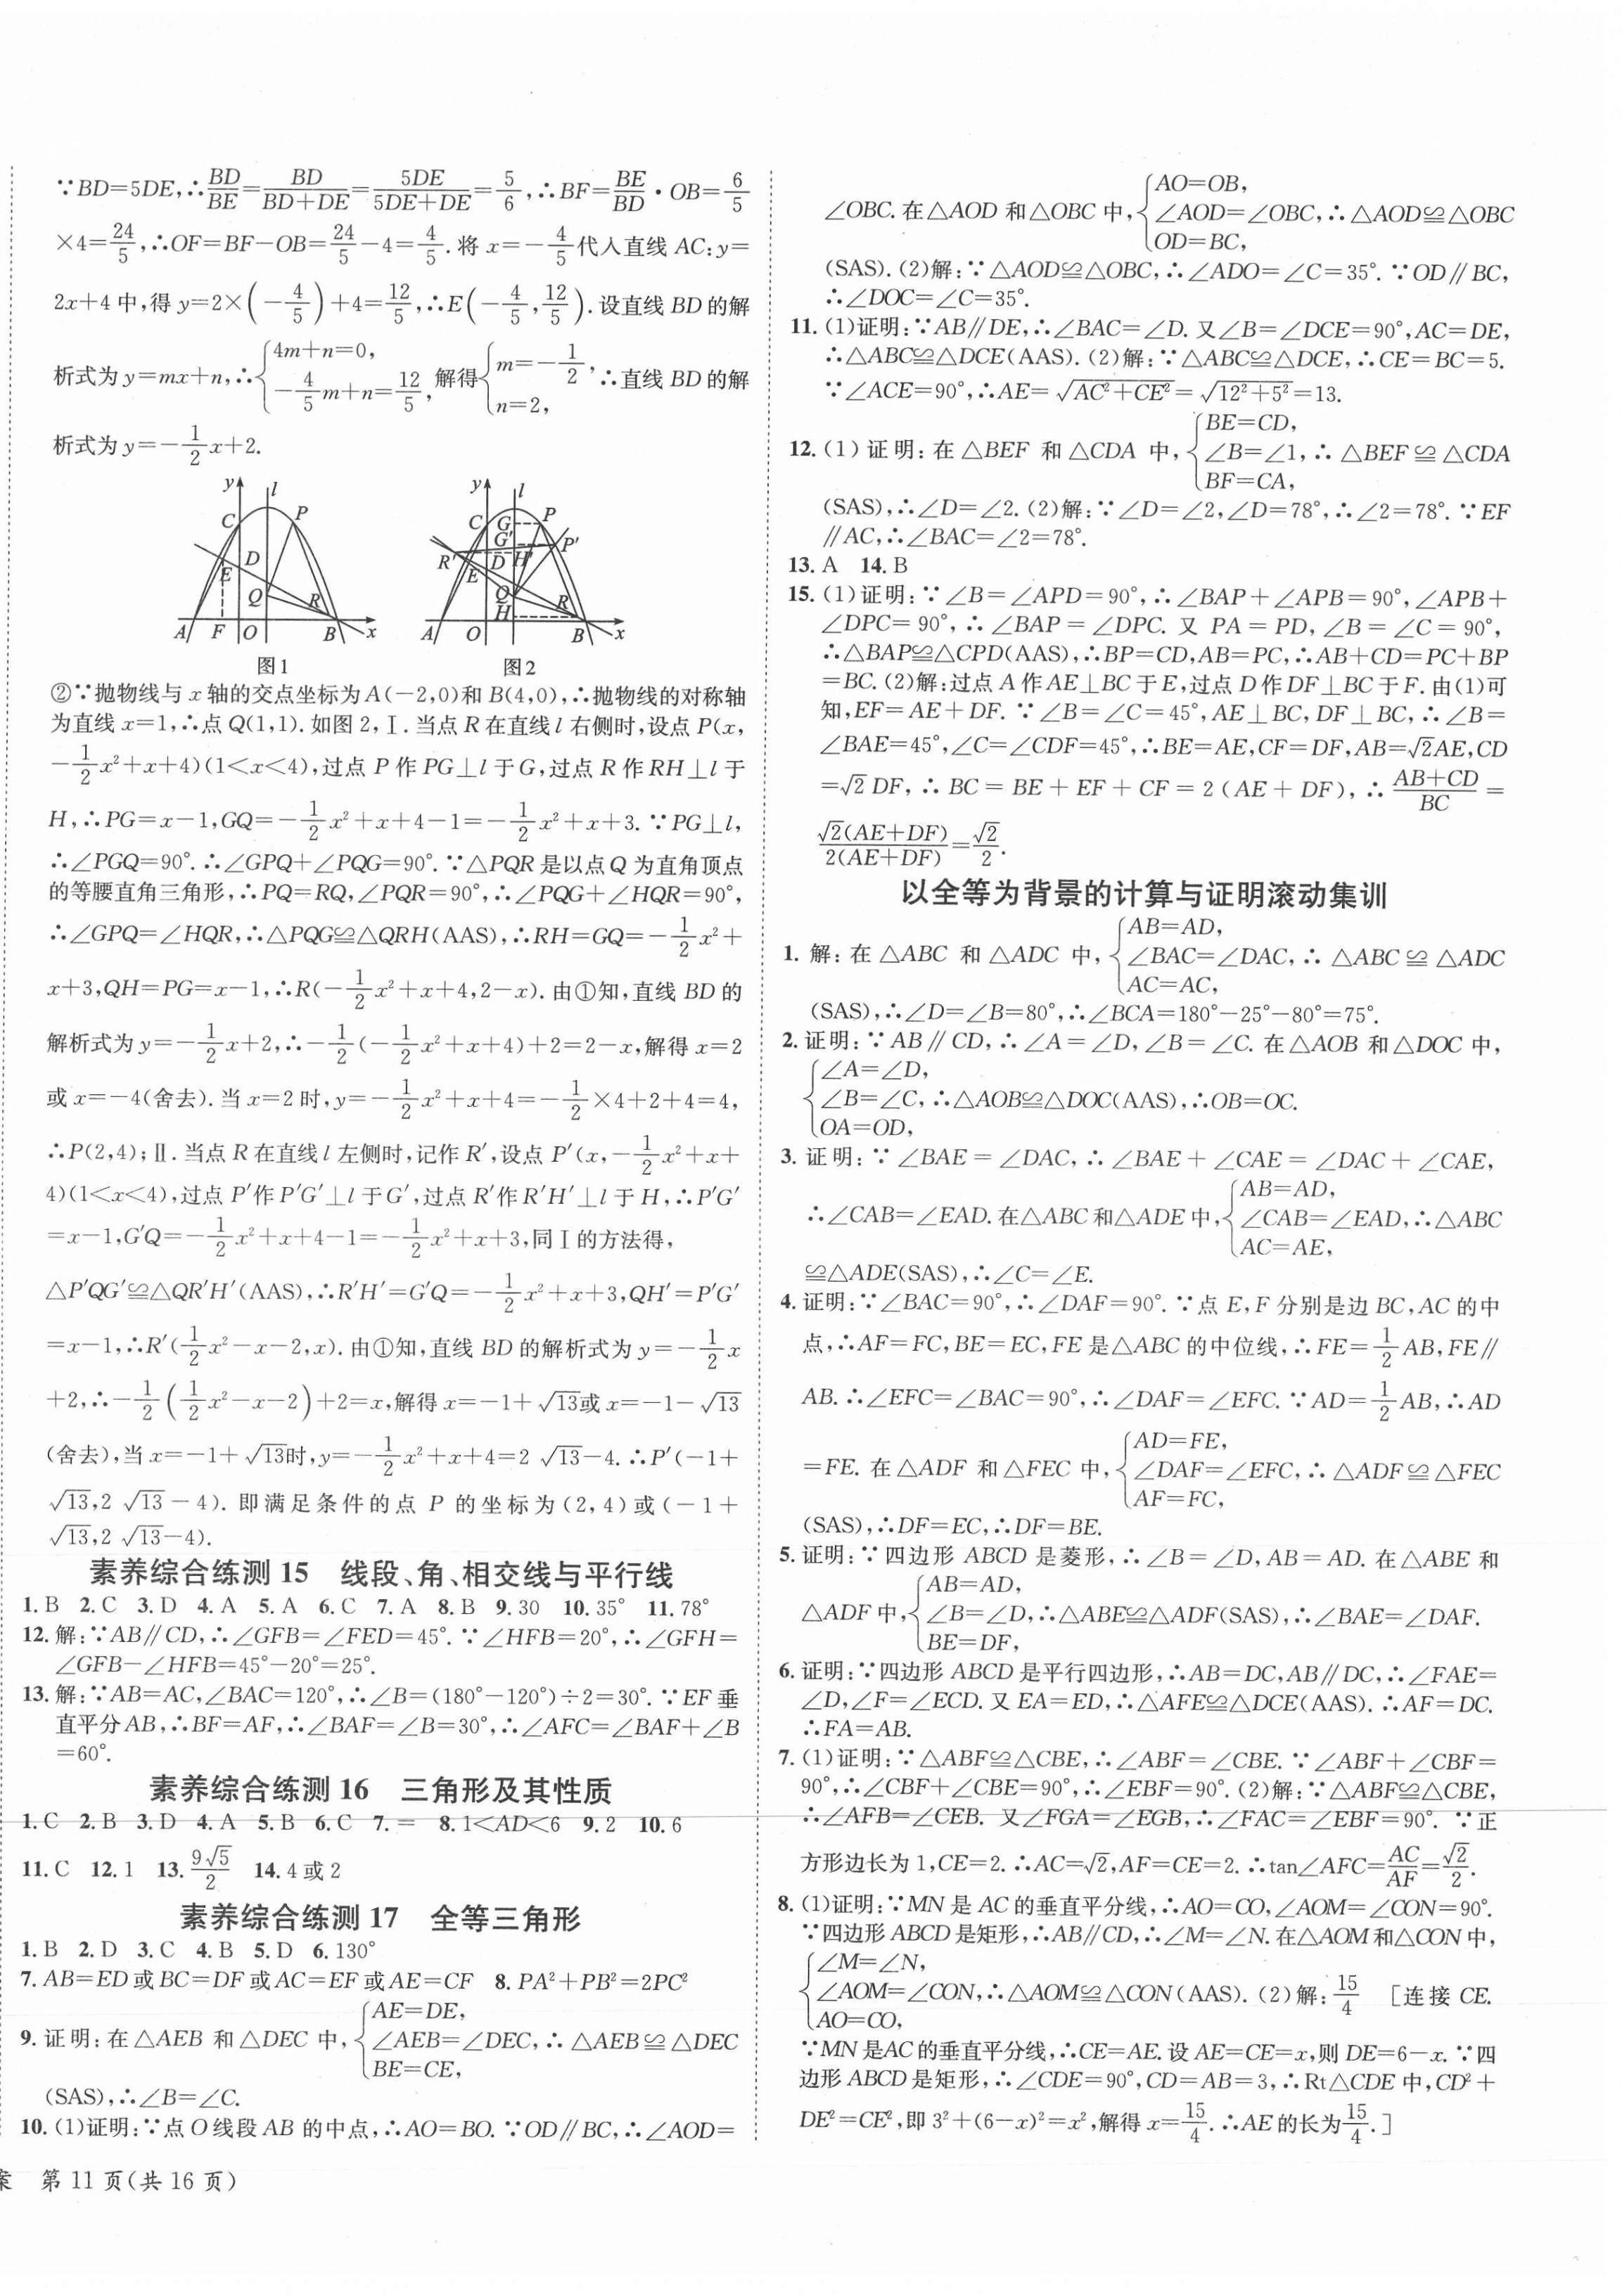 ∵BD=5DE,∴BD/BE=BD/(BD+DE)=5DE/(5DE+DE)=5/6,∴BF=BE/BD·OB=6/5
×4=24/5,∴OF=BF-OB=24/5-4=4/5.将 x=-4/5代入直线 AC:y=
2x+4 中,得 y=2×(-4/5)+4=12/5,∴E(-4/5,12/5).设直线 BD 的解
析式为 y=mx+n,∴{4m+n=0, -4/5m+n=12/5, 解得{m=-1/2, n=2, ∴直线 BD 的解
析式为 y=-1/2x+2.
y l C P D E Q R A F O B x
图1
y l C G P G′ P′ R′ D H′ E Q H R A O B x
图2
②∵抛物线与 x 轴的交点坐标为 A(-2,0)和 B(4,0),∴抛物线的对称轴
为直线 x=1,∴点 Q(1,1).如图 2,Ⅰ.当点 R 在直线 l 右侧时,设点 P(x,
-1/2x²+x+4)(1<x<4),过点 P 作 PG⊥l 于 G,过点 R 作 RH⊥l 于
H,∴PG=x-1,GQ=-1/2x²+x+4-1=-1/2x²+x+3.∵PG⊥l,
∴∠PGQ=90°.∴∠GPQ+∠PQG=90°.∵△PQR 是以点 Q 为直角顶点
的等腰直角三角形,∴PQ=RQ,∠PQR=90°,∴∠PQG+∠HQR=90°,
∴∠GPQ=∠HQR,∴△PQG≌△QRH(AAS),∴RH=GQ=-1/2x²+
x+3,QH=PG=x-1,∴R(-1/2x²+x+4,2-x).由①知,直线 BD 的
解析式为 y=-1/2x+2,∴-1/2(-1/2x²+x+4)+2=2-x,解得 x=2
或 x=-4(舍去).当 x=2 时,y=-1/2x²+x+4=-1/2×4+2+4=4,
∴P(2,4);Ⅱ.当点 R 在直线 l 左侧时,记作 R′,设点 P′(x,-1/2x²+x+
4)(1<x<4),过点 P′作 P′G′⊥l 于 G′,过点 R′作 R′H′⊥l 于 H,∴P′G′
=x-1,G′Q=-1/2x²+x+4-1=-1/2x²+x+3,同Ⅰ的方法得,
△P′QG′≌△QR′H′(AAS),∴R′H′=G′Q=-1/2x²+x+3,QH′=P′G′
=x-1,∴R′(1/2x²-x-2,x).由①知,直线 BD 的解析式为 y=-1/2x
+2,∴-1/2(1/2x²-x-2)+2=x,解得 x=-1+√13或 x=-1-√13
(舍去),当 x=-1+√13时,y=-1/2x²+x+4=2√13-4.∴P′(-1+
√13,2√13-4).即满足条件的点 P 的坐标为(2,4)或(-1+
√13,2√13-4).
素养综合练测 15 线段、角、相交线与平行线
1.B 2.C 3.D 4.A 5.A 6.C 7.A 8.B 9.30 10.35° 11.78°
12.解:∵AB∥CD,∴∠GFB=∠FED=45°.∵∠HFB=20°,∴∠GFH=
∠GFB-∠HFB=45°-20°=25°.
13.解:∵AB=AC,∠BAC=120°,∴∠B=(180°-120°)÷2=30°.∵EF 垂
直平分 AB,∴BF=AF,∴∠BAF=∠B=30°,∴∠AFC=∠BAF+∠B
=60°.
素养综合练测 16 三角形及其性质
1.C 2.B 3.D 4.A 5.B 6.C 7.= 8.1<AD<6 9.2 10.6
11.C 12.1 13.9√5/2 14.4 或 2
素养综合练测 17 全等三角形
1.B 2.D 3.C 4.B 5.D 6.130°
7.AB=ED 或 BC=DF 或 AC=EF 或 AE=CF 8.PA²+PB²=2PC²
9.证明:在△AEB 和△DEC 中,{AE=DE, ∠AEB=∠DEC, BE=CE, ∴△AEB≌△DEC
(SAS),∴∠B=∠C.
10.(1)证明:∵点 O 线段 AB 的中点,∴AO=BO.∵OD∥BC,∴∠AOD=
案 第 11 页(共 16 页)
∠OBC.在△AOD 和△OBC 中,{AO=OB, ∠AOD=∠OBC, OD=BC, ∴△AOD≌△OBC
(SAS).(2)解:∵△AOD≌△OBC,∴∠ADO=∠C=35°.∵OD∥BC,
∴∠DOC=∠C=35°.
11.(1)证明:∵AB∥DE,∴∠BAC=∠D.又∠B=∠DCE=90°,AC=DE,
∴△ABC≌△DCE(AAS).(2)解:∵△ABC≌△DCE,∴CE=BC=5.
∵∠ACE=90°,∴AE=√(AC²+CE²)=√(12²+5²)=13.
12.(1)证明:在△BEF 和△CDA 中,{BE=CD, ∠B=∠1, BF=CA, ∴△BEF≌△CDA
(SAS),∴∠D=∠2.(2)解:∵∠D=∠2,∠D=78°,∴∠2=78°.∵EF
∥AC,∴∠BAC=∠2=78°.
13.A 14.B
15.(1)证明:∵∠B=∠APD=90°,∴∠BAP+∠APB=90°,∠APB+
∠DPC=90°,∴∠BAP=∠DPC.又 PA=PD,∠B=∠C=90°,
∴△BAP≌△CPD(AAS),∴BP=CD,AB=PC,∴AB+CD=PC+BP
=BC.(2)解:过点 A 作 AE⊥BC 于 E,过点 D 作 DF⊥BC 于 F.由(1)可
知,EF=AE+DF.∵∠B=∠C=45°,AE⊥BC,DF⊥BC,∴∠B=
∠BAE=45°,∠C=∠CDF=45°,∴BE=AE,CF=DF,AB=√2AE,CD
=√2DF,∴BC=BE+EF+CF=2(AE+DF),∴(AB+CD)/BC=
√2(AE+DF)/2(AE+DF)=√2/2.
以全等为背景的计算与证明滚动集训
1.解:在△ABC 和△ADC 中,{AB=AD, ∠BAC=∠DAC, AC=AC, ∴△ABC≌△ADC
(SAS),∴∠D=∠B=80°,∴∠BCA=180°-25°-80°=75°.
2.证明:∵AB∥CD,∴∠A=∠D,∠B=∠C.在△AOB 和△DOC 中,
{∠A=∠D, ∠B=∠C, OA=OD, ∴△AOB≌△DOC(AAS),∴OB=OC.
3.证明:∵∠BAE=∠DAC,∴∠BAE+∠CAE=∠DAC+∠CAE,
∴∠CAB=∠EAD.在△ABC和△ADE中,{AB=AD, ∠CAB=∠EAD, AC=AE, ∴△ABC
≌△ADE(SAS),∴∠C=∠E.
4.证明:∵∠BAC=90°,∴∠DAF=90°.∵点 E,F 分别是边 BC,AC 的中
点,∴AF=FC,BE=EC,FE 是△ABC 的中位线,∴FE=1/2AB,FE∥
AB.∴∠EFC=∠BAC=90°,∴∠DAF=∠EFC.∵AD=1/2AB,∴AD
=FE.在△ADF 和△FEC 中,{AD=FE, ∠DAF=∠EFC, AF=FC, ∴△ADF≌△FEC
(SAS),∴DF=EC,∴DF=BE.
5.证明:∵四边形 ABCD 是菱形,∴∠B=∠D,AB=AD.在△ABE 和
△ADF 中,{AB=AD, ∠B=∠D, BE=DF, ∴△ABE≌△ADF(SAS),∴∠BAE=∠DAF.
6.证明:∵四边形 ABCD 是平行四边形,∴AB=DC,AB∥DC,∴∠FAE=
∠D,∠F=∠ECD.又 EA=ED,∴△AFE≌△DCE(AAS).∴AF=DC.
∴FA=AB.
7.(1)证明:∵△ABF≌△CBE,∴∠ABF=∠CBE.∵∠ABF+∠CBF=
90°,∴∠CBF+∠CBE=90°,∴∠EBF=90°.(2)解:∵△ABF≌△CBE,
∴∠AFB=∠CEB.又∠FGA=∠EGB,∴∠FAC=∠EBF=90°.∵正
方形边长为 1,CE=2.∴AC=√2,AF=CE=2.∴tan∠AFC=AC/AF=√2/2.
8.(1)证明:∵MN 是 AC 的垂直平分线,∴AO=CO,∠AOM=∠CON=90°.
∵四边形 ABCD 是矩形,∴AB∥CD,∴∠M=∠N.在△AOM和△CON中,
{∠M=∠N, ∠AOM=∠CON, AO=CO, ∴△AOM≌△CON(AAS).(2)解:15/4 [连接 CE.
∵MN 是AC的垂直平分线,∴CE=AE.设 AE=CE=x,则 DE=6-x.∵四
边形 ABCD 是矩形,∴∠CDE=90°,CD=AB=3,∴Rt△CDE 中,CD²+
DE²=CE²,即 3²+(6-x)²=x²,解得 x=15/4.∴AE 的长为15/4.]